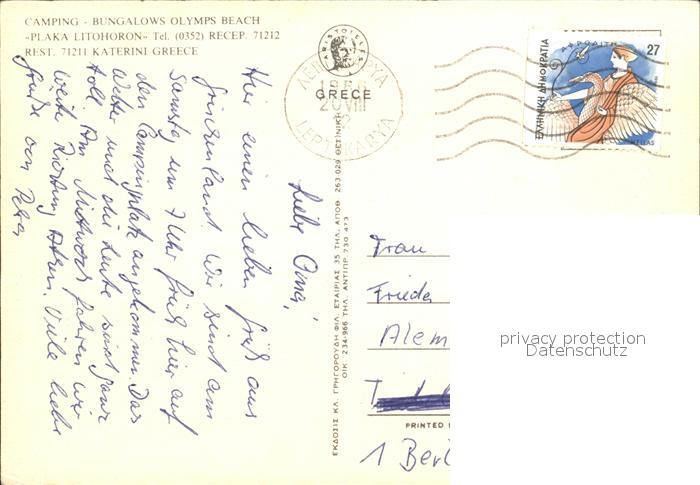 CAMPING - BUNGALOWS OLYMPS BEACH
«PLAKA LITOHORON» Tel. (0352) RECEP. 71212
REST. 71211 KATERINI GREECE
Liebe Oma,
Hier einen lieben Gruß aus
Griechenland. Wir sind am
Samstag um 7 Uhr früh hier auf
den Campingplatz angekommen. Das
Wetter und die Leute sind ganz
toll. Am Mittwoch fahren wir
weiter Richtung Athen. Viele liebe
Grüße von Peter
ARISTOTELES
GRECE
20 VIII
ΛΕΠΤΟΚΑΡΥΑ
LEPTOKARYA
ΕΛΛΗΝΙΚΗ ΔΗΜΟΚΡΑΤΙΑ
ΑΦΡΟΔΙΤΗ
27
HELLAS
ΕΚΔΟΣΙΣ ΚΛ. ΓΡΗΓΟΡΟΥΔΗ ΦΙΛ. ΕΤΑΙΡΙΑΣ 35 ΤΗΛ. ΑΠΟΘ. 263 029 ΘΕΣ/ΝΙΚΗ
ΟΙΚ. 234-966 ΤΗΛ. ΑΝΤΙΠΡ. 730 473
Frau
Frieda
Alem
PRINTED
1 Berl
privacy protection
Datenschutz